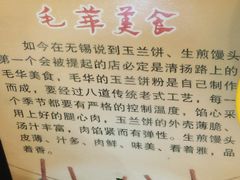 毛华美食
如今在无锡说到玉兰饼、生煎馒头
第一个会被提起的店必定是清扬路上的
毛华美食，毛华的玉兰饼粉是自己制作
而成，要经过八道传统老式工艺，每一
个季节都要有严格的控制温度，馅心采
用上好的腿心肉，玉兰饼的外壳薄脆、
汤汁丰富，肉馅紧而有弹性。生煎馒头
皮薄、汁多、肉鲜、味美、看着雅，品
着香。